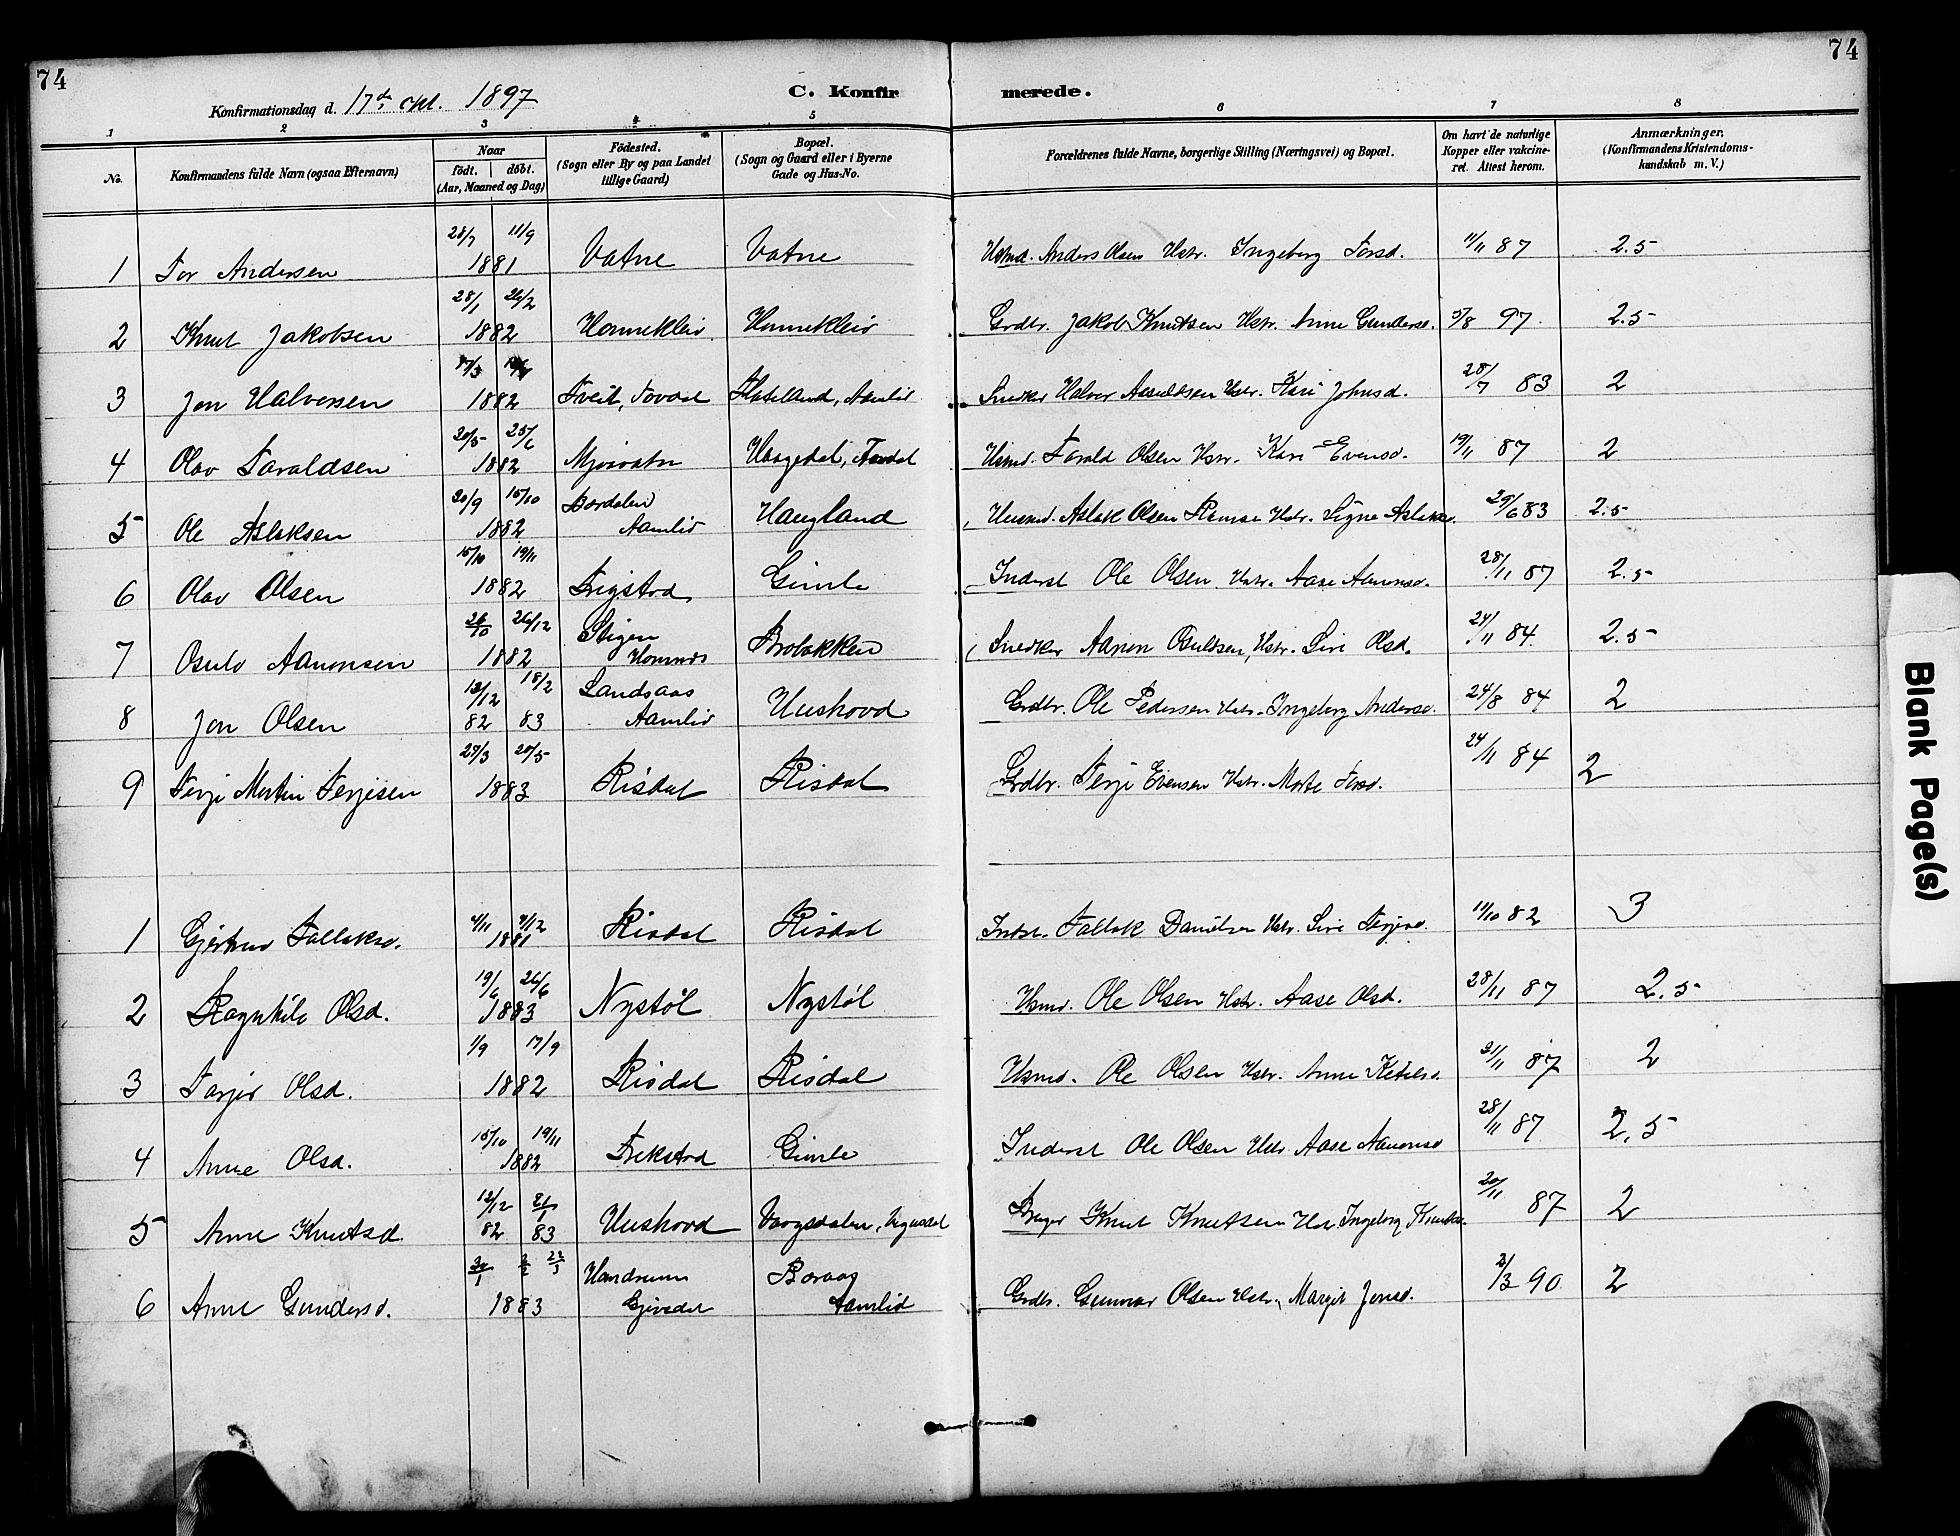 74
74
Konfirmationsdag d. 17de okt. 1897
C. Konfirmerede.
1 2 3 4 5 6 7 8
No.
Konfirmandens fulde Navn (ogsaa Efternavn)
Naar
født. døbt.
(Aar, Maaned og Dag)
Fødested.
(Sogn eller By og paa Landet
tillige Gaard)
Bopæl.
(Sogn og Gaard eller i Byerne
Gade og Hus-No.
Forældrenes fulde Navne, borgerlige Stilling (Næringsvei) og Bopæl.
Om havt de naturlige
Kopper eller vakcine-
ret. Attest herom.
Anmærkninger.
(Konfirmandens Kristendoms-
kundskab m. V.)
1 Tor Andersen 28/7 11/9 1881 Vatne Vatne Usmd. Anders Olsen Hstr. Ingeborg Torsd. 11/11 87 2.5
2 Knut Jakobsen 28/1 26/2 1882 Honnekleiv Honnekleiv Grdbr. Jakob Knutsen Hstr. Anne Gundersd. 5/8 97. 2.5
3 Jon Halvorsen 17/3 1882 Tveit, Tovdal Aamlid Snedker Halvor Aasuldsen Hstr. Kari Johnsd. 28/7 83 2
4 Olav Taraldsen 20/5 25/6 1882 Mjaavatn Haugedal, Tovdal Usmd. Tarald Olsen Hstr. Kari Evensd. 19/11 87 2
5 Ole Aslaksen 20/9 15/10 1882 Bordalen Aamlid Haugland Husmd. Aslak Olsen Ramse Hstr. Signe Aslaksd. 29/6 83 2.5
6 Olav Olsen 15/10 19/11 1882 Trigstad Gimle Inderst Ole Olsen Hstr. Aase Aanonsd. 28/11 87 2.5
7 Osulv Aanonsen 26/10 26/12 1882 Stigen Hommes Brobakken Snedker Aanon Osuldsen, Hstr. Siri Olsd. 24/11 84. 2.5
8 Jon Olsen 12/12 82 18/2 83 Landsaas Aamlid Uushovd Grdbr. Ole Pedersen Hstr. Ingeborg Andersd. 24/8 84 2
9 Terje Martin Terjesen 29/3 20/5 1883 Risdal Risdal Grdbr. Terje Evensen Hstr. Marte Torsd. 24/11 84 2
1 Gjertrud Tallaksd. 4/11 4/12 1881 Risdal Risdal Indst. Tallak Danielsen Hstr. Siri Terjesd. 11/10 82 3
2 Ragnhild Olsd. 19/6 26/6 1883 Nystøl Nystøl Usmd. Ole Olsen Hstr. Aase Olsd. 28/11 87 2.5
3 Tarjer Olsd. 1/9 17/9 1882 Risdal Risdal Usmd. Ole Olsen Hstr. Anne Ketilsd. 21/11 87 2
4 Anne Olsd. 15/10 19/11 1882 Trekstad Gimle Inderst Ole Olsen Hstr. Aase Aanonsd 28/11 87 2,5
5 Anne Knutsd. 12/12 82 21/1 83 Uushovd Vaagsdalen, Vegusdal Bruger Knut Knutsen Hstr. Ingeborg Knutsd. 20/11 87 2
6 Anne Gundersd. 30/1 1883 Handrum Gjøvdal Boraas Aamlid Grdbr. Gunnar Olsen Hstr. Margit Jonsd. 2/3 90 2
Blank Page(s)